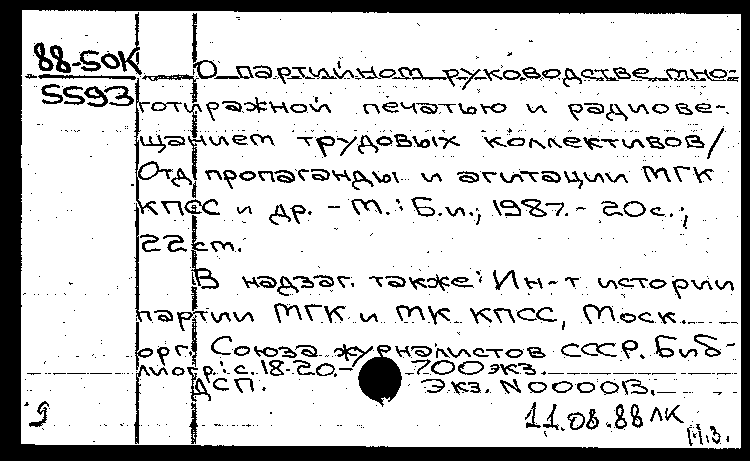 88-50К
5593
О партийном руководстве мно-
готиражной печатью и радиове-
щанием трудовых коллективов/
Отд пропаганды и агитации МГК
КПСС и др. - М.: Б.и., 1987. - 20с.;
22 см.
В надзаг. также: Ин-т истории
партии МГК и МК КПСС, Моск.
орг. Союза журналистов СССР. Биб-
лиогр.: с. 18-20. - 700 экз.
ДСП. Экз. N 00001З.
9
11.08.88 ЛК
М.З.